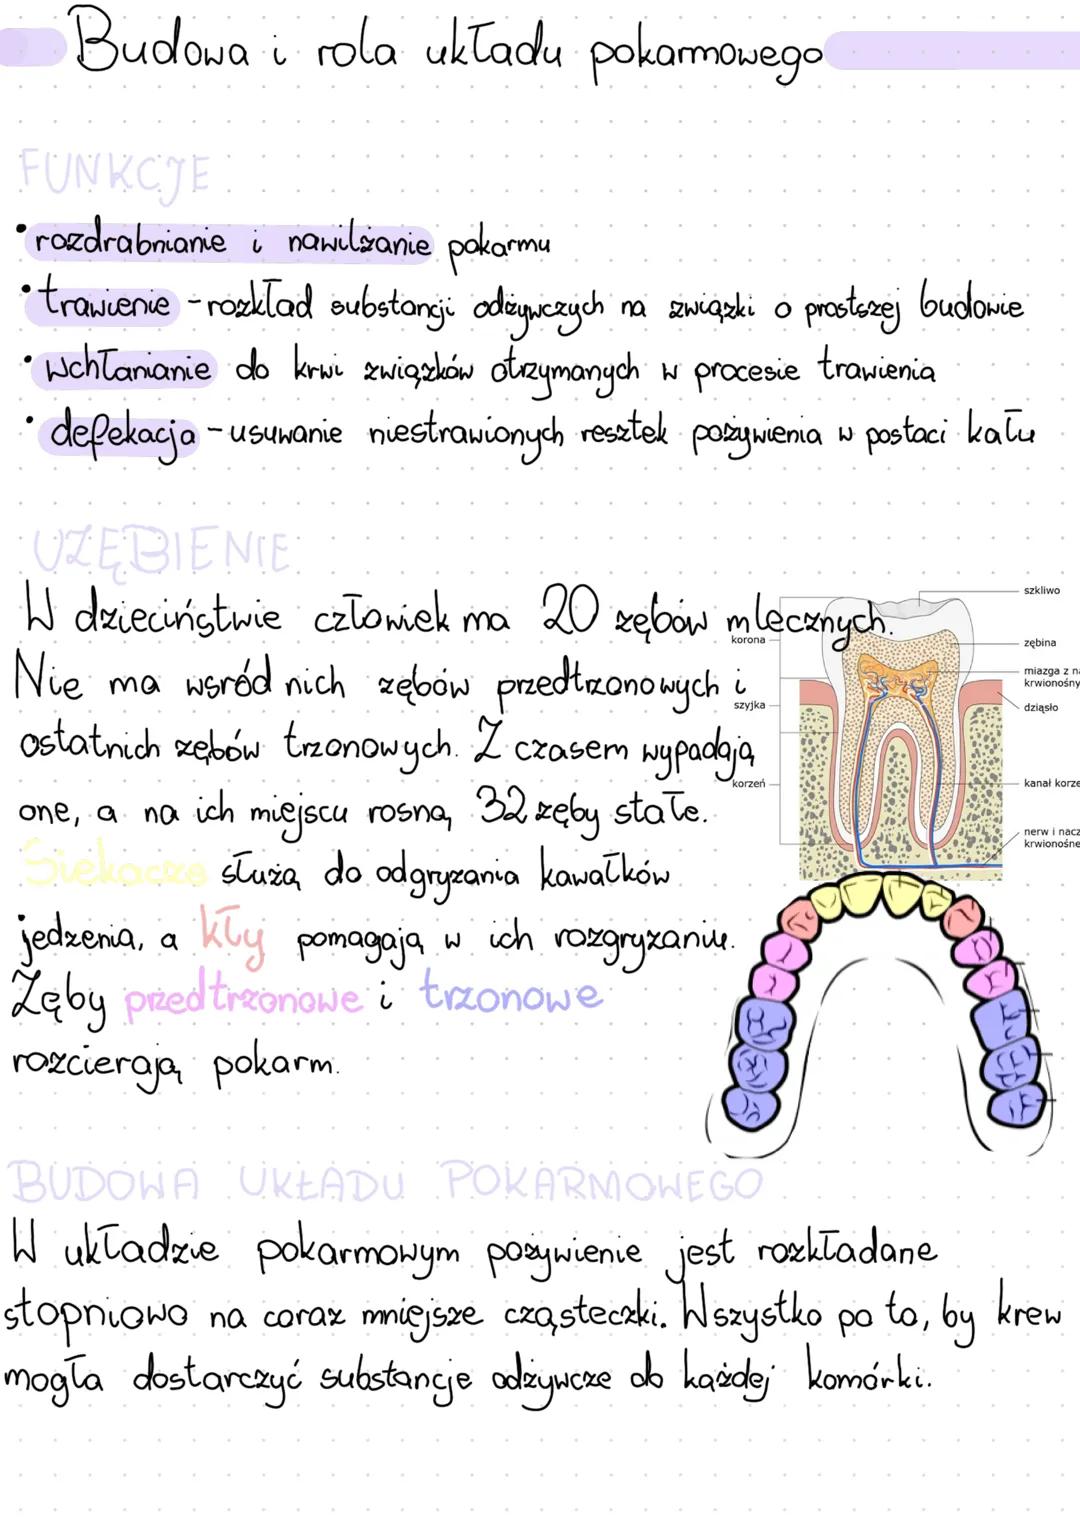 Budowa i rola układu pokarmowego
FUNKCJE
• rozdrabnianie i nawilżanie pokarmu
• trawienie - rozkład substancji odżywczych na związki o prostszej budowie
• wchłanianie do krwi związków otrzymanych w procesie trawienia
• defekacja - usuwanie niestrawionych resztek pożywienia w postaci kału
UZĘBIENIE
W dzieciństwie człowiek ma 20 zębów mlecznych.
Nie ma wśród nich zębów przedtrzonowych i
ostatnich zębów trzonowych. Z czasem wypadają
one, a na ich miejscu rosną 32 zęby stałe.
Siekacze służą do odgryzania kawałków
jedzenia, a kły pomagają w ich rozgryzaniu.
Zęby przedtrzonowe i trzonowe
rozcierają pokarm.
korona
szyjka
korzeń
szkliwo
zębina
miazga z na
krwionośny
dziąsło
kanał korze
nerw i nacz
krwionośne
BUDOWA UKŁADU POKARMOWEGO
W układzie pokarmowym pożywienie jest rozkładane
stopniowo na coraz mniejsze cząsteczki. Wszystko po to, by krew
mogła dostarczyć substancje odżywcze do każdej komórki.